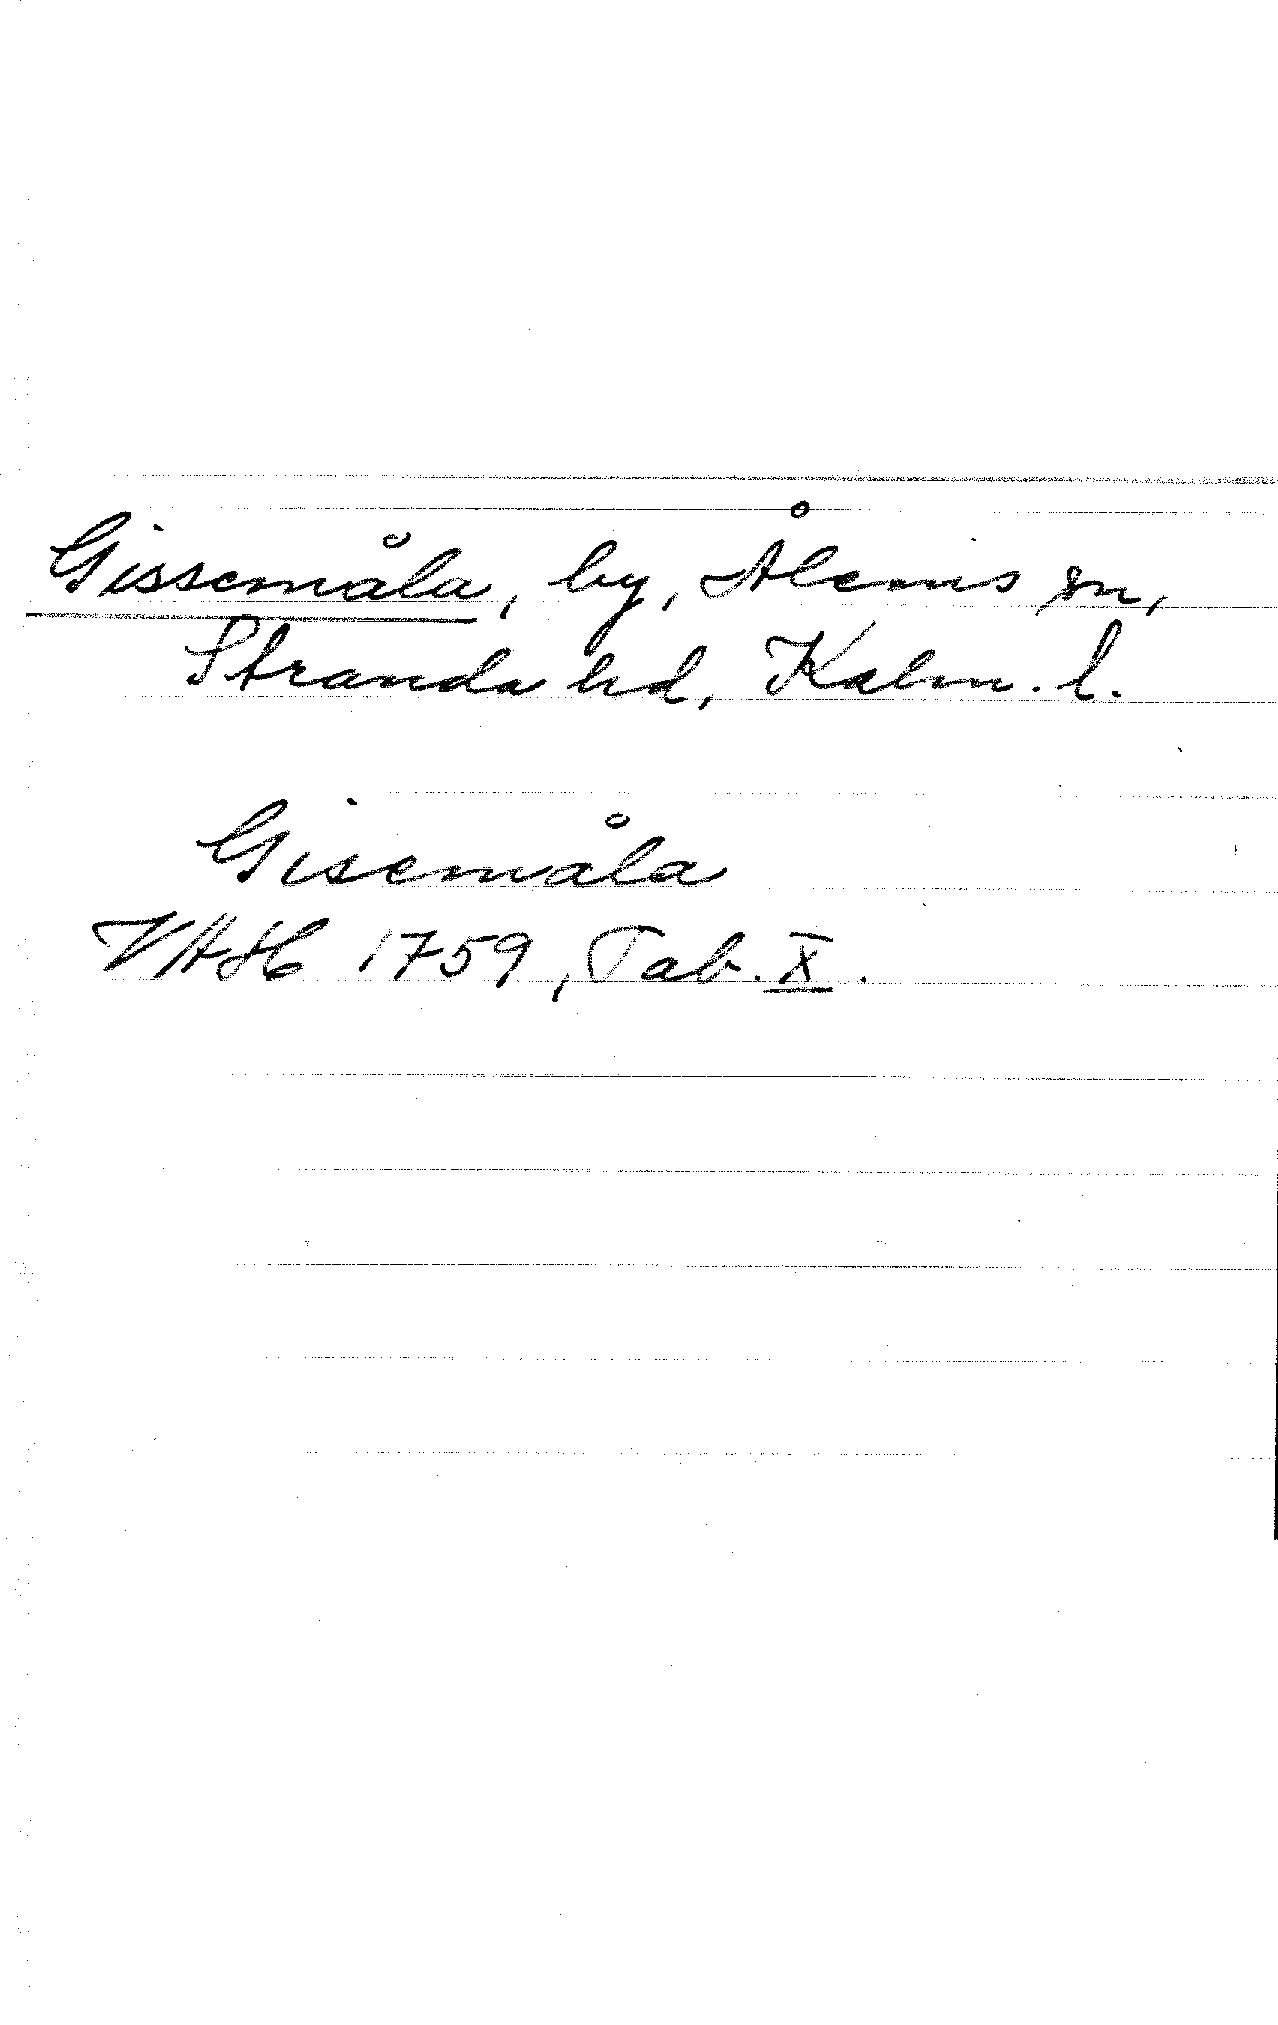 Gissemåla, by, Ålems sn,
Stranda hd, Kalm. l.
Gisemåla
VAH 1759, Tab. X.